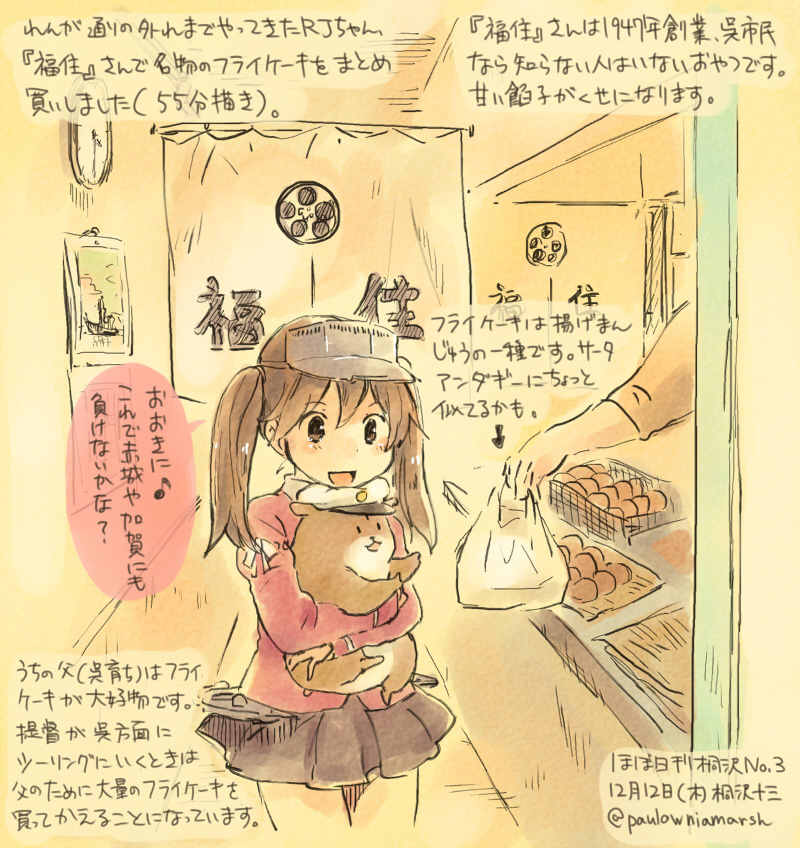 れんが通りの外れまでやってきたRJちゃん、
『福住』さんで名物のフライケーキをまとめ
買いしました(55分描き)。
『福住』さんは1947年創業、呉市民
なら知らない人はいないおやつです。
甘い餡子がくせになります。
福住
福住
フライケーキは揚げまん
じゅうの一種です。サータ
アンダギーにちょっと
似てるかも。
おおきに♪
これで赤城や加賀にも
負けないかな?
うちの父(呉育ち)はフライ
ケーキが大好物です。
提督が呉方面に
ツーリングにいくときは
父のために大量のフライケーキを
買ってかえることになっています。
ほぼ日刊桐沢No.3
12月12日(木)桐沢十三
@paulowniamarsh